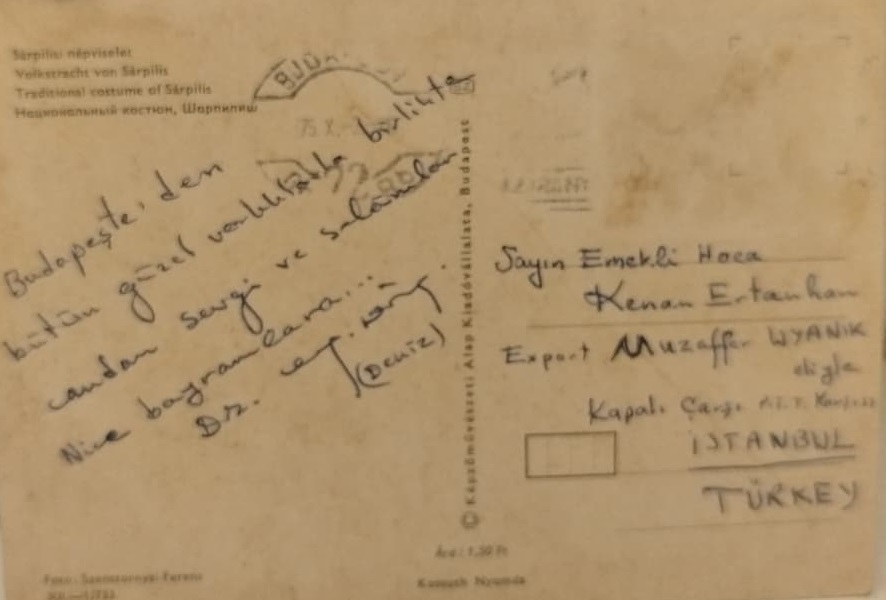 Sárpilisi népviselet
Volkstracht von Sárpilis
Traditional costume of Sárpilis
Национальный костюм, Шарпилиш
75 X.
Budapeşte'den
bütün güzel varlıklarla birlikte
candan sevgi ve selâmlar
Nice bayramlara...
Dr.
(DENİZ)
© Képzőművészeti Alap Kiadóvállalata, Budapest
Sayın Emekli Hoca
Kenan Ertanhan
Export Muzaffer UYANIK
eliyle
Kapalı Çarşı
İSTANBUL
TÜRKEY
Foto: Ferenc
Ára: 1,50 Ft
Kossuth Nyomda